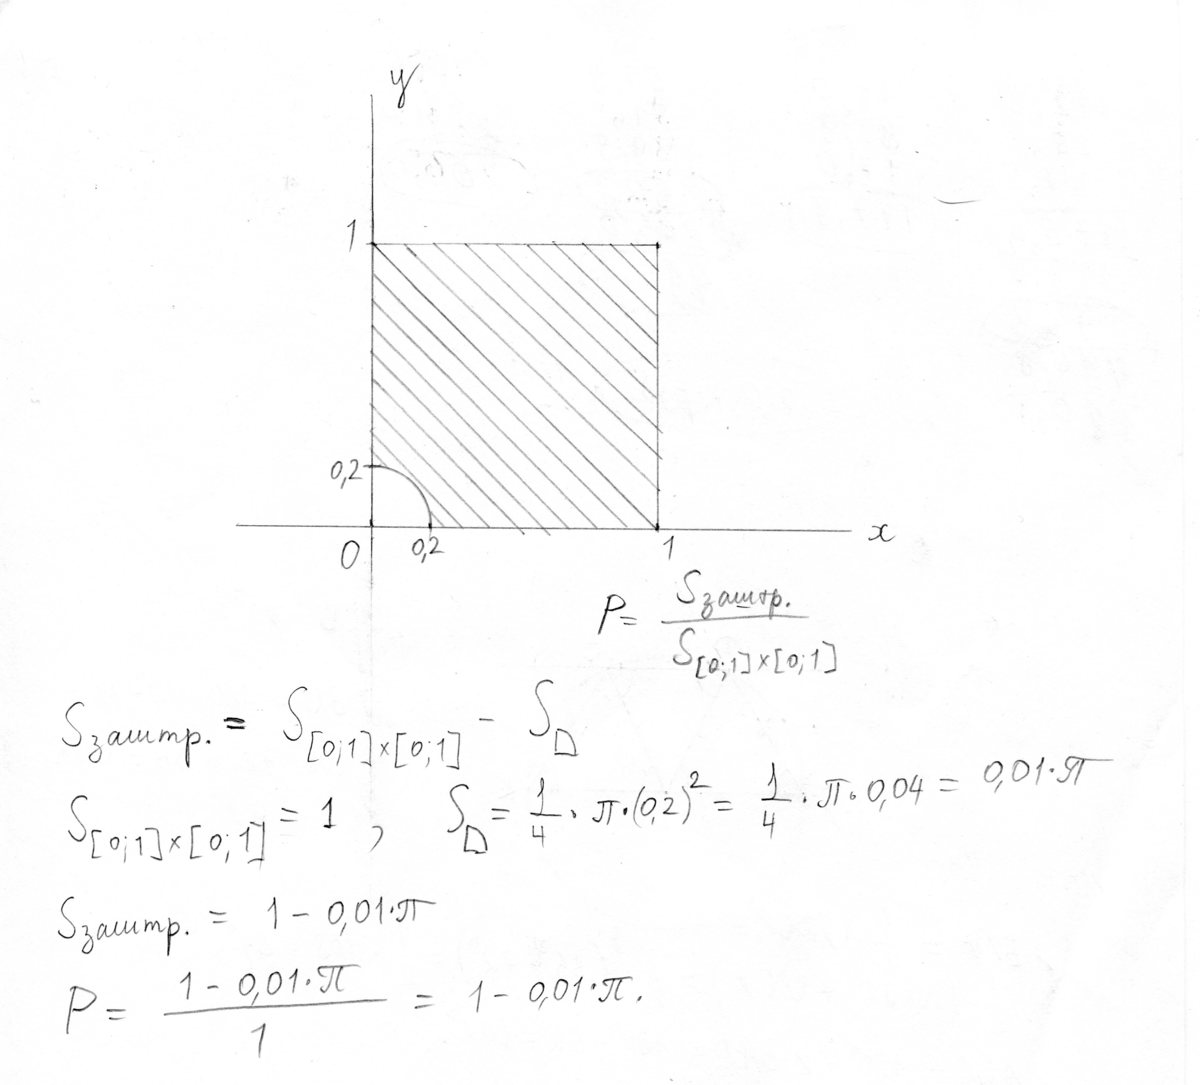 y
1
0,2
0
0,2
1
x
P = Sзаштр. / S[0;1]×[0;1]
Sзаштр. = S[0;1]×[0;1] - SD
S[0;1]×[0;1] = 1 , SD = 1/4 · π · (0,2)² = 1/4 · π · 0,04 = 0,01·π
Sзаштр. = 1 - 0,01·π
P = 1 - 0,01·π / 1 = 1 - 0,01·π.